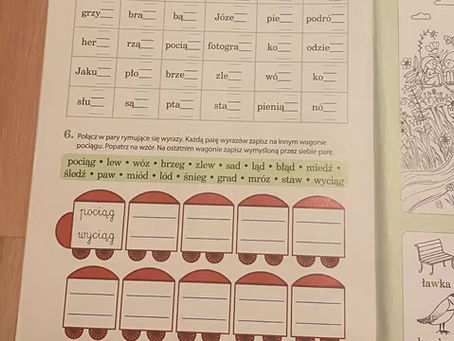 grzy__ bra__ bą__ Józe__ pie__ podró__
her__ rzą__ pocią__ fotogra__ ko__ odzie__
Jaku__ pło__ brze__ zle__ wó__ ko__
słu__ są__ pta__ sta__ pienią__ nó__
6. Połącz w pary rymujące się wyrazy. Każdą parę wyrazów zapisz na innym wagonie
pociągu. Popatrz na wzór. Na ostatnim wagonie zapisz wymyśloną przez siebie parę.
pociąg • lew • wóz • brzeg • zlew • sad • ląd • błąd • miedź •
śledź • paw • miód • lód • śnieg • grad • mróz • staw • wyciąg
pociąg
wyciąg
ławka